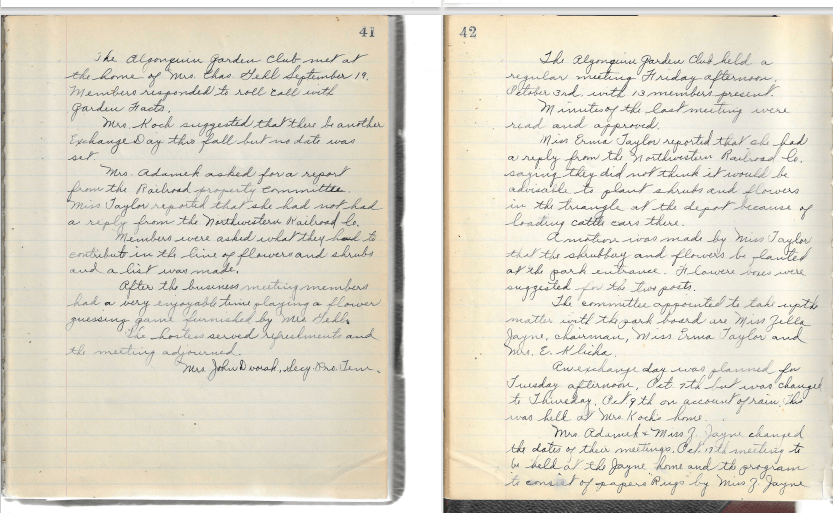 41
The Algonquin Garden Club met at
the home of Mrs. Chas. Gehl September 19.
Members responded to roll call with
Garden Facts.
Mrs. Koch suggested that there be another
Exchange Day this fall but no date was
set.
Mrs. Adamek asked for a report
from the Railroad property committee.
Miss Taylor reported that she had not had
a reply from the Northwestern Railroad Co.
Members were asked what they had to
contribute in the line of flowers and shrubs
and a list was made.
After the business meeting members
had a very enjoyable time playing a flower
guessing game furnished by Mrs Gehl.
The hostess served refreshments and
the meeting adjourned.
Mrs John Dvorak, Secy. Pro. Tem.
42
The Algonquin Garden Club held a
regular meeting Friday afternoon,
October 3rd. with 13 members present.
Minutes of the last meeting were
read and approved.
Miss Erma Taylor reported that she had
a reply from the Northwestern Railroad Co.
saying they did not think it would be
advisable to plant shrubs and flowers
in the triangle at the depot because of
loading cattle cars there.
A motion was made by Miss Taylor
that the shrubbery and flowers be planted
at the park entrance. Flowers boxes were
suggested for the two posts.
The committee appointed to take up the
matter with the park board are Miss Zilla
Jayne, chairman, Miss Erma Taylor and
Mrs. E. Klicha.
An exchange day was planned for
Tuesday afternoon, Oct. 7th but was changed
to Thursday, Oct 9th on account of rain. This
was held at Mrs. Kochs home.
Mrs Adamek & Miss Z. Jayne changed
the dates of their meetings. Oct. 17th meeting to
be held at the Jayne home and the program
to consist of papers "Rugs" by Miss Z. Jayne